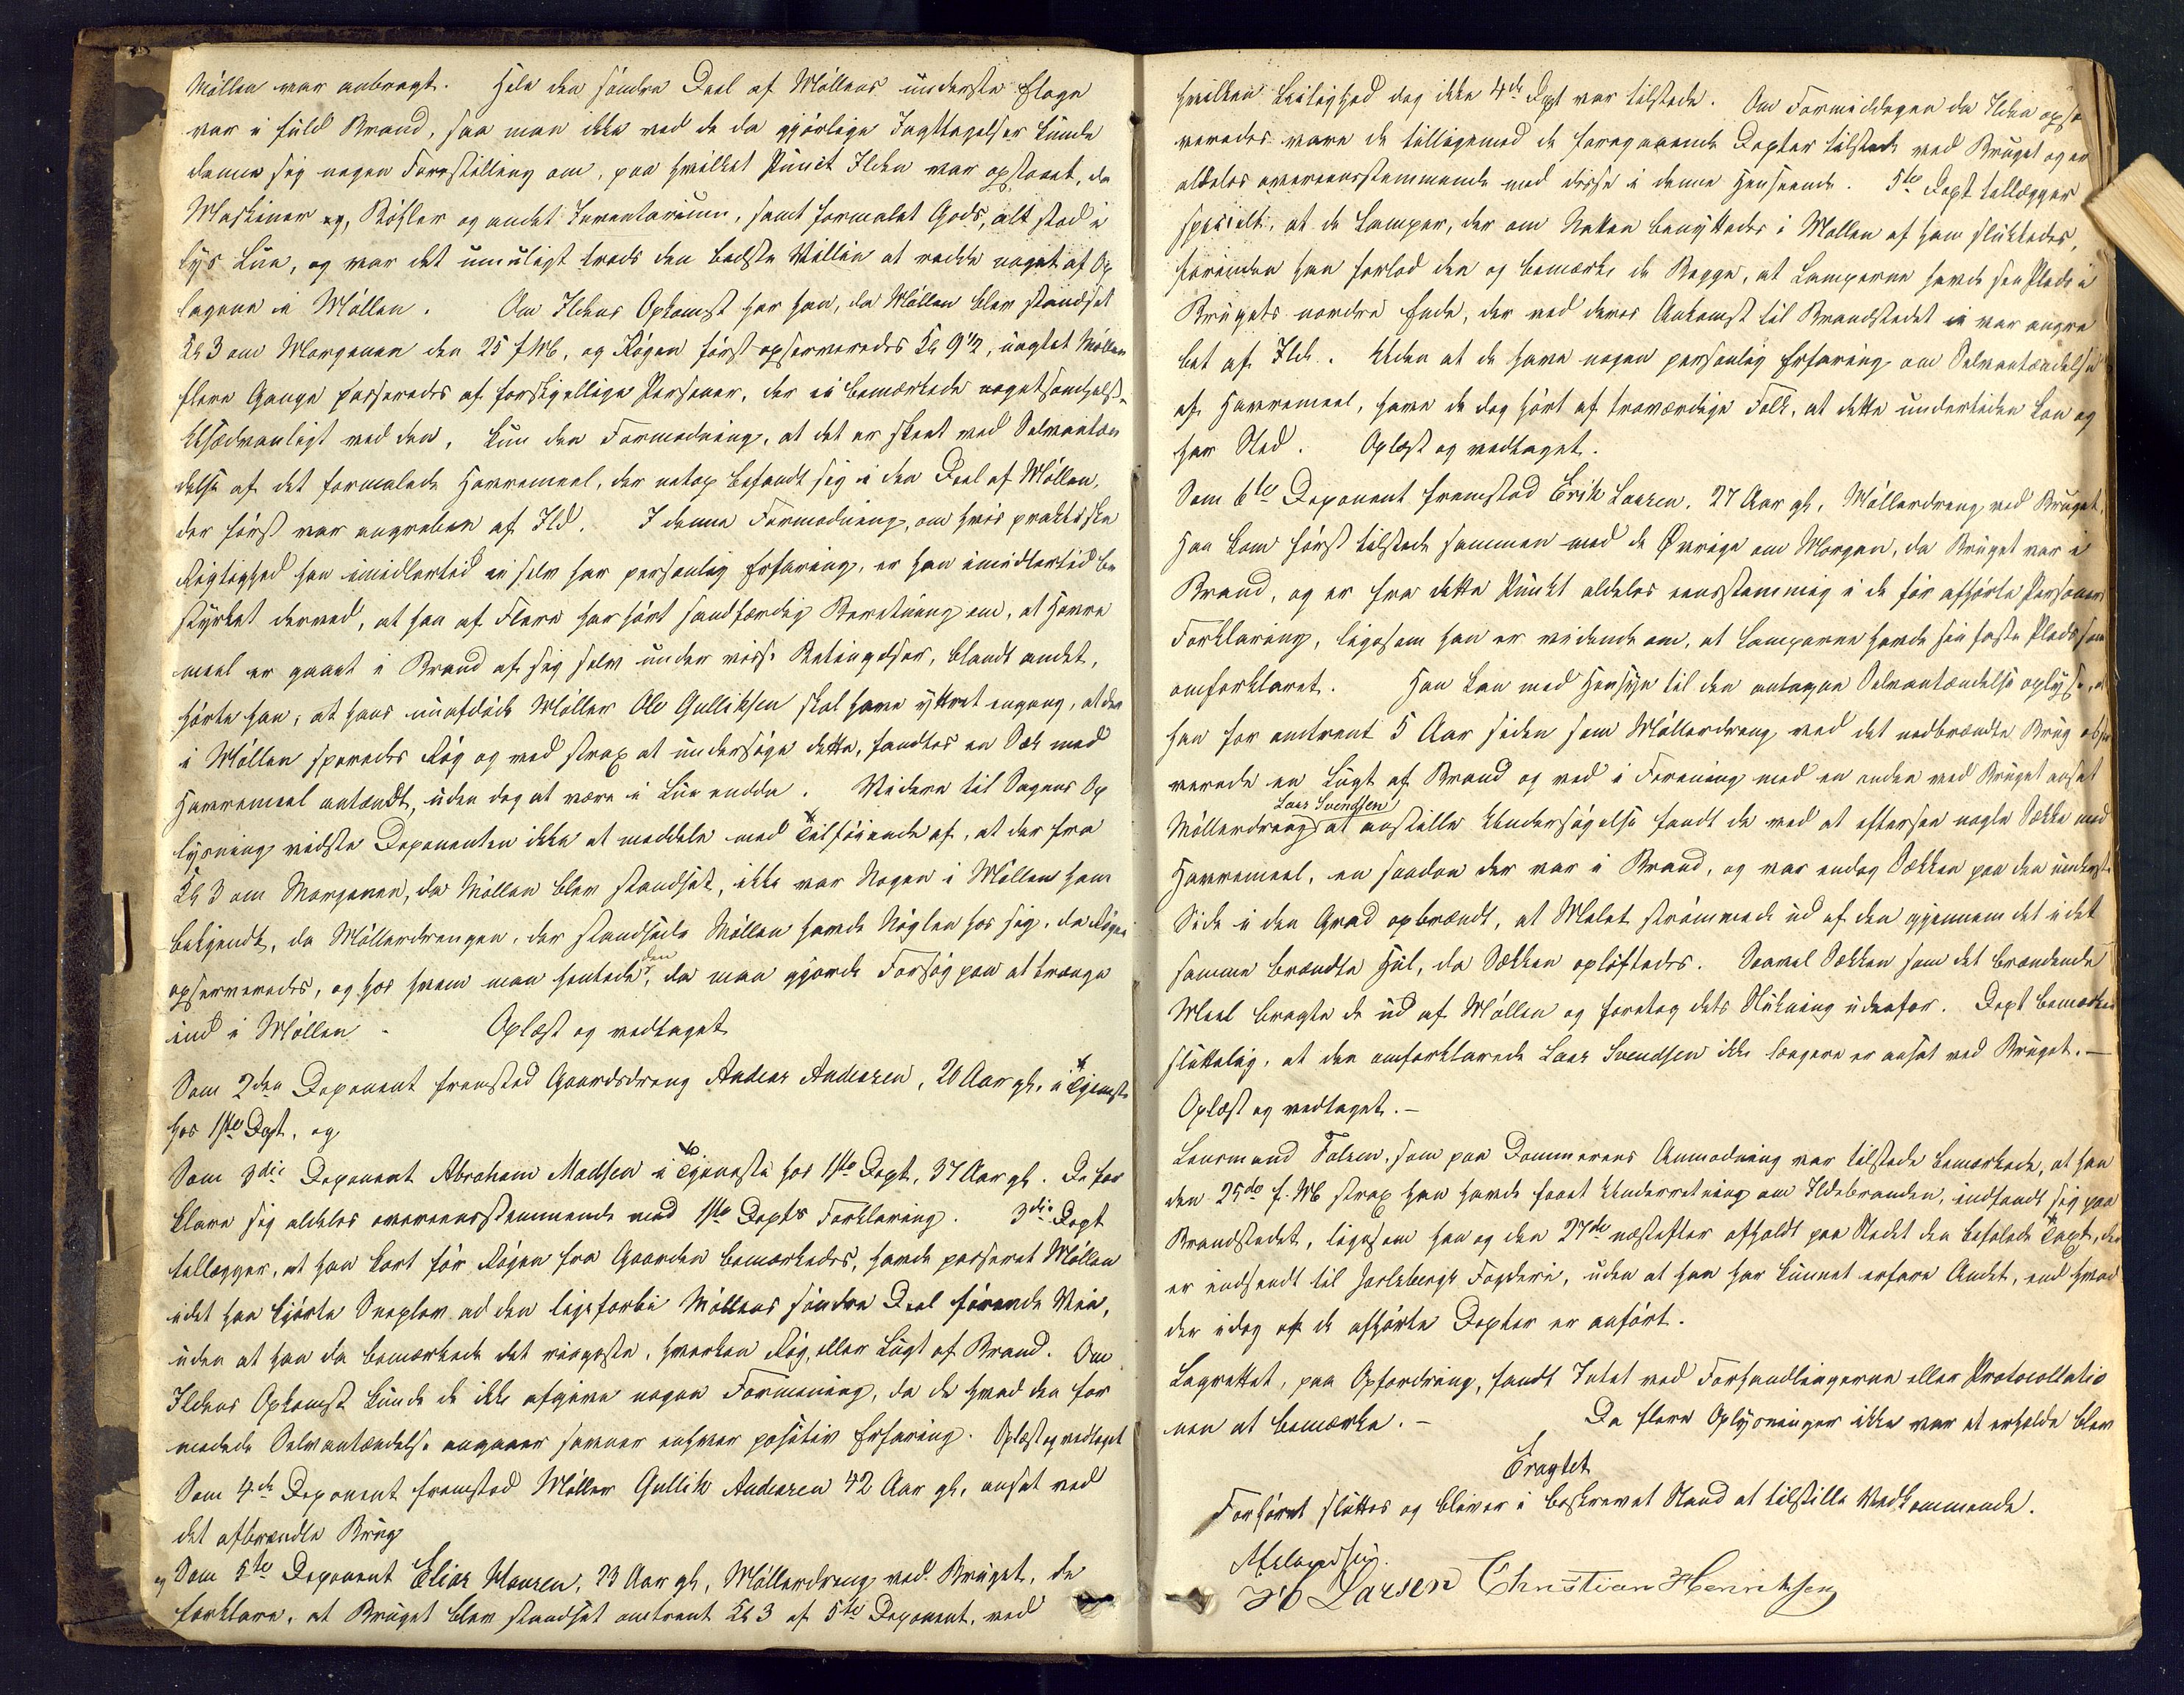 Möllen var anbragt. Hele den söndre Deel af Möllens underste Etage
var i fuld Brand, saa man ikke ved de da gjörlige Iagttagelser kunde
danne sig nogen Forestilling om, paa hvilket Punct Ilden var opstaaet, da
Maskiner og, Kister og andet Inventarium, samt formalet Gods, alt stod i
lys Lue, og var det umuligt trods den bedste Villie at redde noget af Op
lagene i Möllen. Om Ildens Opkomst har han, da Möllen blev standset
Kl 3 om Morgenen den 25 f.M., og Rögen först observeredes Kl 9½, uagtet Möllen
flere Gange passeredes af forskjellige Personer, der ei bemærkede nogetsomhelst
Usædvanligt ved den, kun den Formodning, at det er skeet ved Selvantæn
delse af det formalede Havremeel, der netop befandt sig i den Deel af Möllen,
der först var angreben af Ild. I denne Formodning, om hvis praktiske
Rigtighed han imidlertid ei selv har personlig Erfaring, er han imidlertid be
styrket derved, at han af Flere har hört sandfærdig Beretning om, at Havre
meel er gaaet i Brand af sig selv under visse Betingelser, blandt andet,
hörte han, at hans nuafdöde Möller Ole Gulliksen skal have yttret engang, at der
i Möllen sporedes Rög og ved strax at undersöge dette, fandtes en Sæk med
Havremeel antændt, uden dog at være i Lue endda. Videre til Sagens Op
lysning vidste Deponenten ikke at meddele med Tilföiende af, at der fra
Kl 3 om Morgenen, da Möllen blev standset, ikke var Nogen i Möllen ham
bekjendt, da Möllerdrengen, der standsede Möllen havde Nöglen hos sig, da Rögen
observeredes, og hos hvem man hentede den, da man gjorde Forsög paa at trænge
ind i Möllen. Oplæst og vedtaget
Som 2den Deponent fremstod Gaardsdreng Anders Andersen, 20 Aar gl. i Tjeneste
hos 1ste Dept, og
Som 3die Deponent Abraham Madsen i Tjeneste hos 1ste Dept, 37 Aar gl. De for
klare sig aldeles overeensstemmende med 1ste Depts Forklaring. 3die Dept
tillægger, at han kort för Rögen fra Gaarden bemærkedes, havde passeret Möllen
idet han kjörte Sneplov ad den lige forbi Möllens söndre Deel förende Vei,
uden at han da bemærkede det ringeste, hverken Rög, eller Lugt af Brand. Om
Ildens Opkomst kunde de ikke afgive nogen Formening, da de hvad den for
modede Selvantændelse angaaer savner enhver positiv Erfaring. Oplæst og vedtaget
Som 4de Deponent fremstod Möller Gullik Andersen 42 Aar gl, ansat ved
det afbrændte Brug
og Som 5te Deponent Elias Hansen, 23 Aar gl, Möllerdreng ved Bruget, de
forklare, at Bruget blev standset omtrent Kl 3 af 5te Deponent, ved
hvilken Leilighed dog ikke 4de Dept var tilstede. Om Formiddagen da Ilden obser
veredes vare de tilligemed de foregaaende Depter tilstede ved Bruget og er
aldeles overeensstemmende med disse i denne Henseende. 5te Dept tillægger
specielt, at de Lamper, der om Natten benyttedes i Möllen af ham slukkedes,
forinden han forlod den og bemærke de Begge, at Lamperne havde sin Plads i
Brugets nordre Ende, der ved deres Ankomst til Brandstedet ei var angre
bet af Ild. Uden at de have nogen personlig Erfaring om Selvantændelse
af Havremeel, have de dog hört af troværdige Folk, at dette undertiden kan og
har Sted. Oplæst og vedtaget.
Som 6te Deponent fremstod Erik Larsen, 27 Aar gl, Möllerdreng ved Bruget.
Han kom först tilstede sammen med de Övrige om Morgen, da Bruget var i
Brand, og er fra dette Punkt aldeles eensstemmig i de för afhörte Personers
Forklaring, ligesom han er vidende om, at Lamperne havde sin faste Plads som
omforklaret. Han kan med Hensyn til den antagne Selvantændelse oplyse, at
han for omtrent 5 Aar siden som Möllerdreng ved det nedbrændte Brug obser
verede en Lugt af Brand og ved i Forening med en anden ved Bruget ansat
Möllerdreng Lars Svendsen at anstille Undersögelse fandt de ved at eftersee nogle Sække med
Havremeel, en saadan der var i Brand, og var endog Sækken paa den underste
Side i den Grad opbrændt, at Melet strömmede ud af den gjennem det i det
samme brændte Hul, da Sækken oplöftedes. Saavel Sækken som det brændende
Meel bragte de ud af Möllen og foretog dets Slukning udenfor. Dept bemærker
sluttelig, at den omforklarede Lars Svendsen ikke længere er ansat ved Bruget.—
Oplæst og vedtaget.—
Lensmand Falsen, som paa Dommerens Anmodning var tilstede bemærkede, at han
den 25de f.M. strax han havde faaet Underretning om Ildebranden, indfandt sig paa
Brandstedet, ligesom han og den 27de næstefter afholdt paa Stedet den befalede Taxt, der
er indsendt til Jarlsbergs Fogderi, uden at han har kunnet erfare Andet, end hvad
der idag af de afhörte Depter er anfört.
Lagrettet, paa Opfordring, fandt Intet ved Forhandlingerne eller Protocollatio
nen at bemærke.— Da flere Oplysninger ikke var at erholde blev
Eragtet
Forhöret sluttes og bliver i beskrevet Stand at tilstille Vedkommende.
H Larsen Christian Henriksen